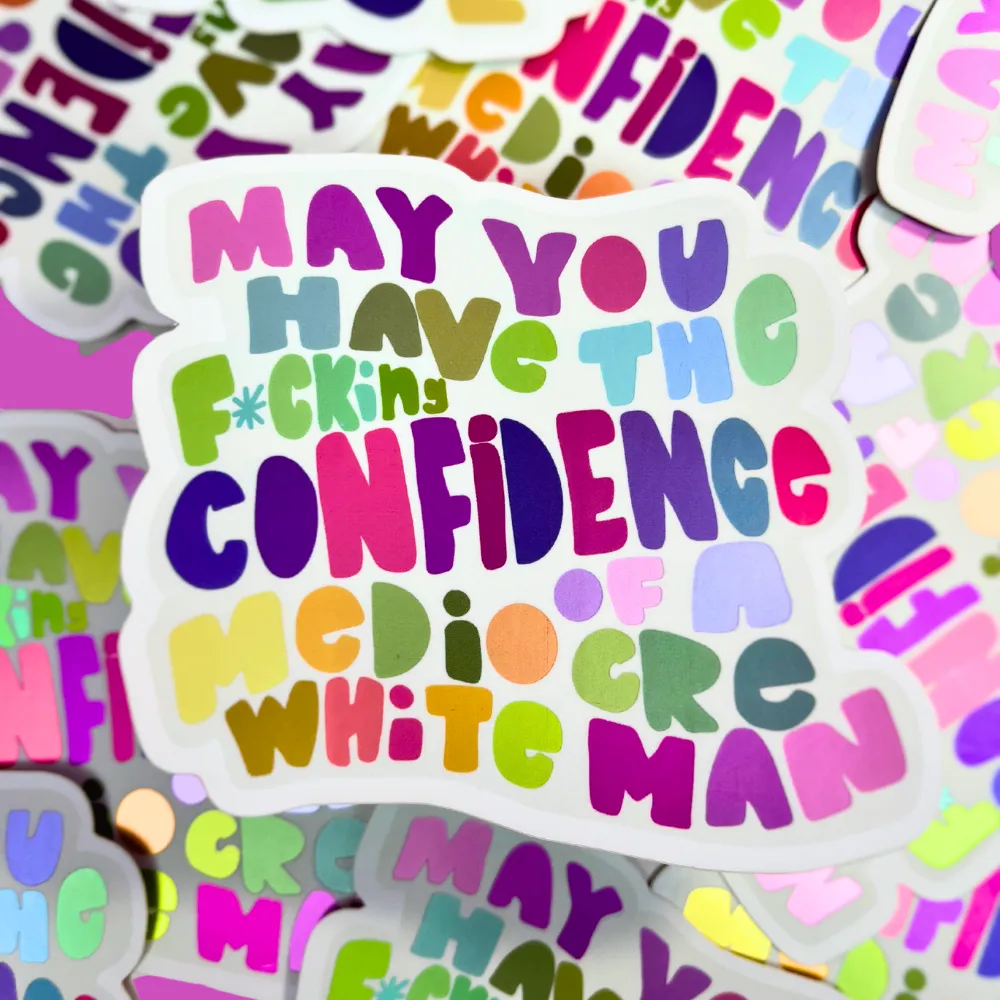 MAY YOU
HAVE THE
F*CKING
CONFIDENCE
OF A
MEDIOCRE
WHITE MAN